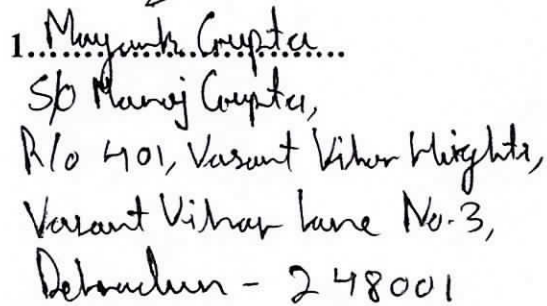 1. Mayank Gupta
S/o Manoj Gupta,
R/o 401, Vasant Vihar Heights,
Vasant Vihar Lane No. 3,
Dehradun - 248001